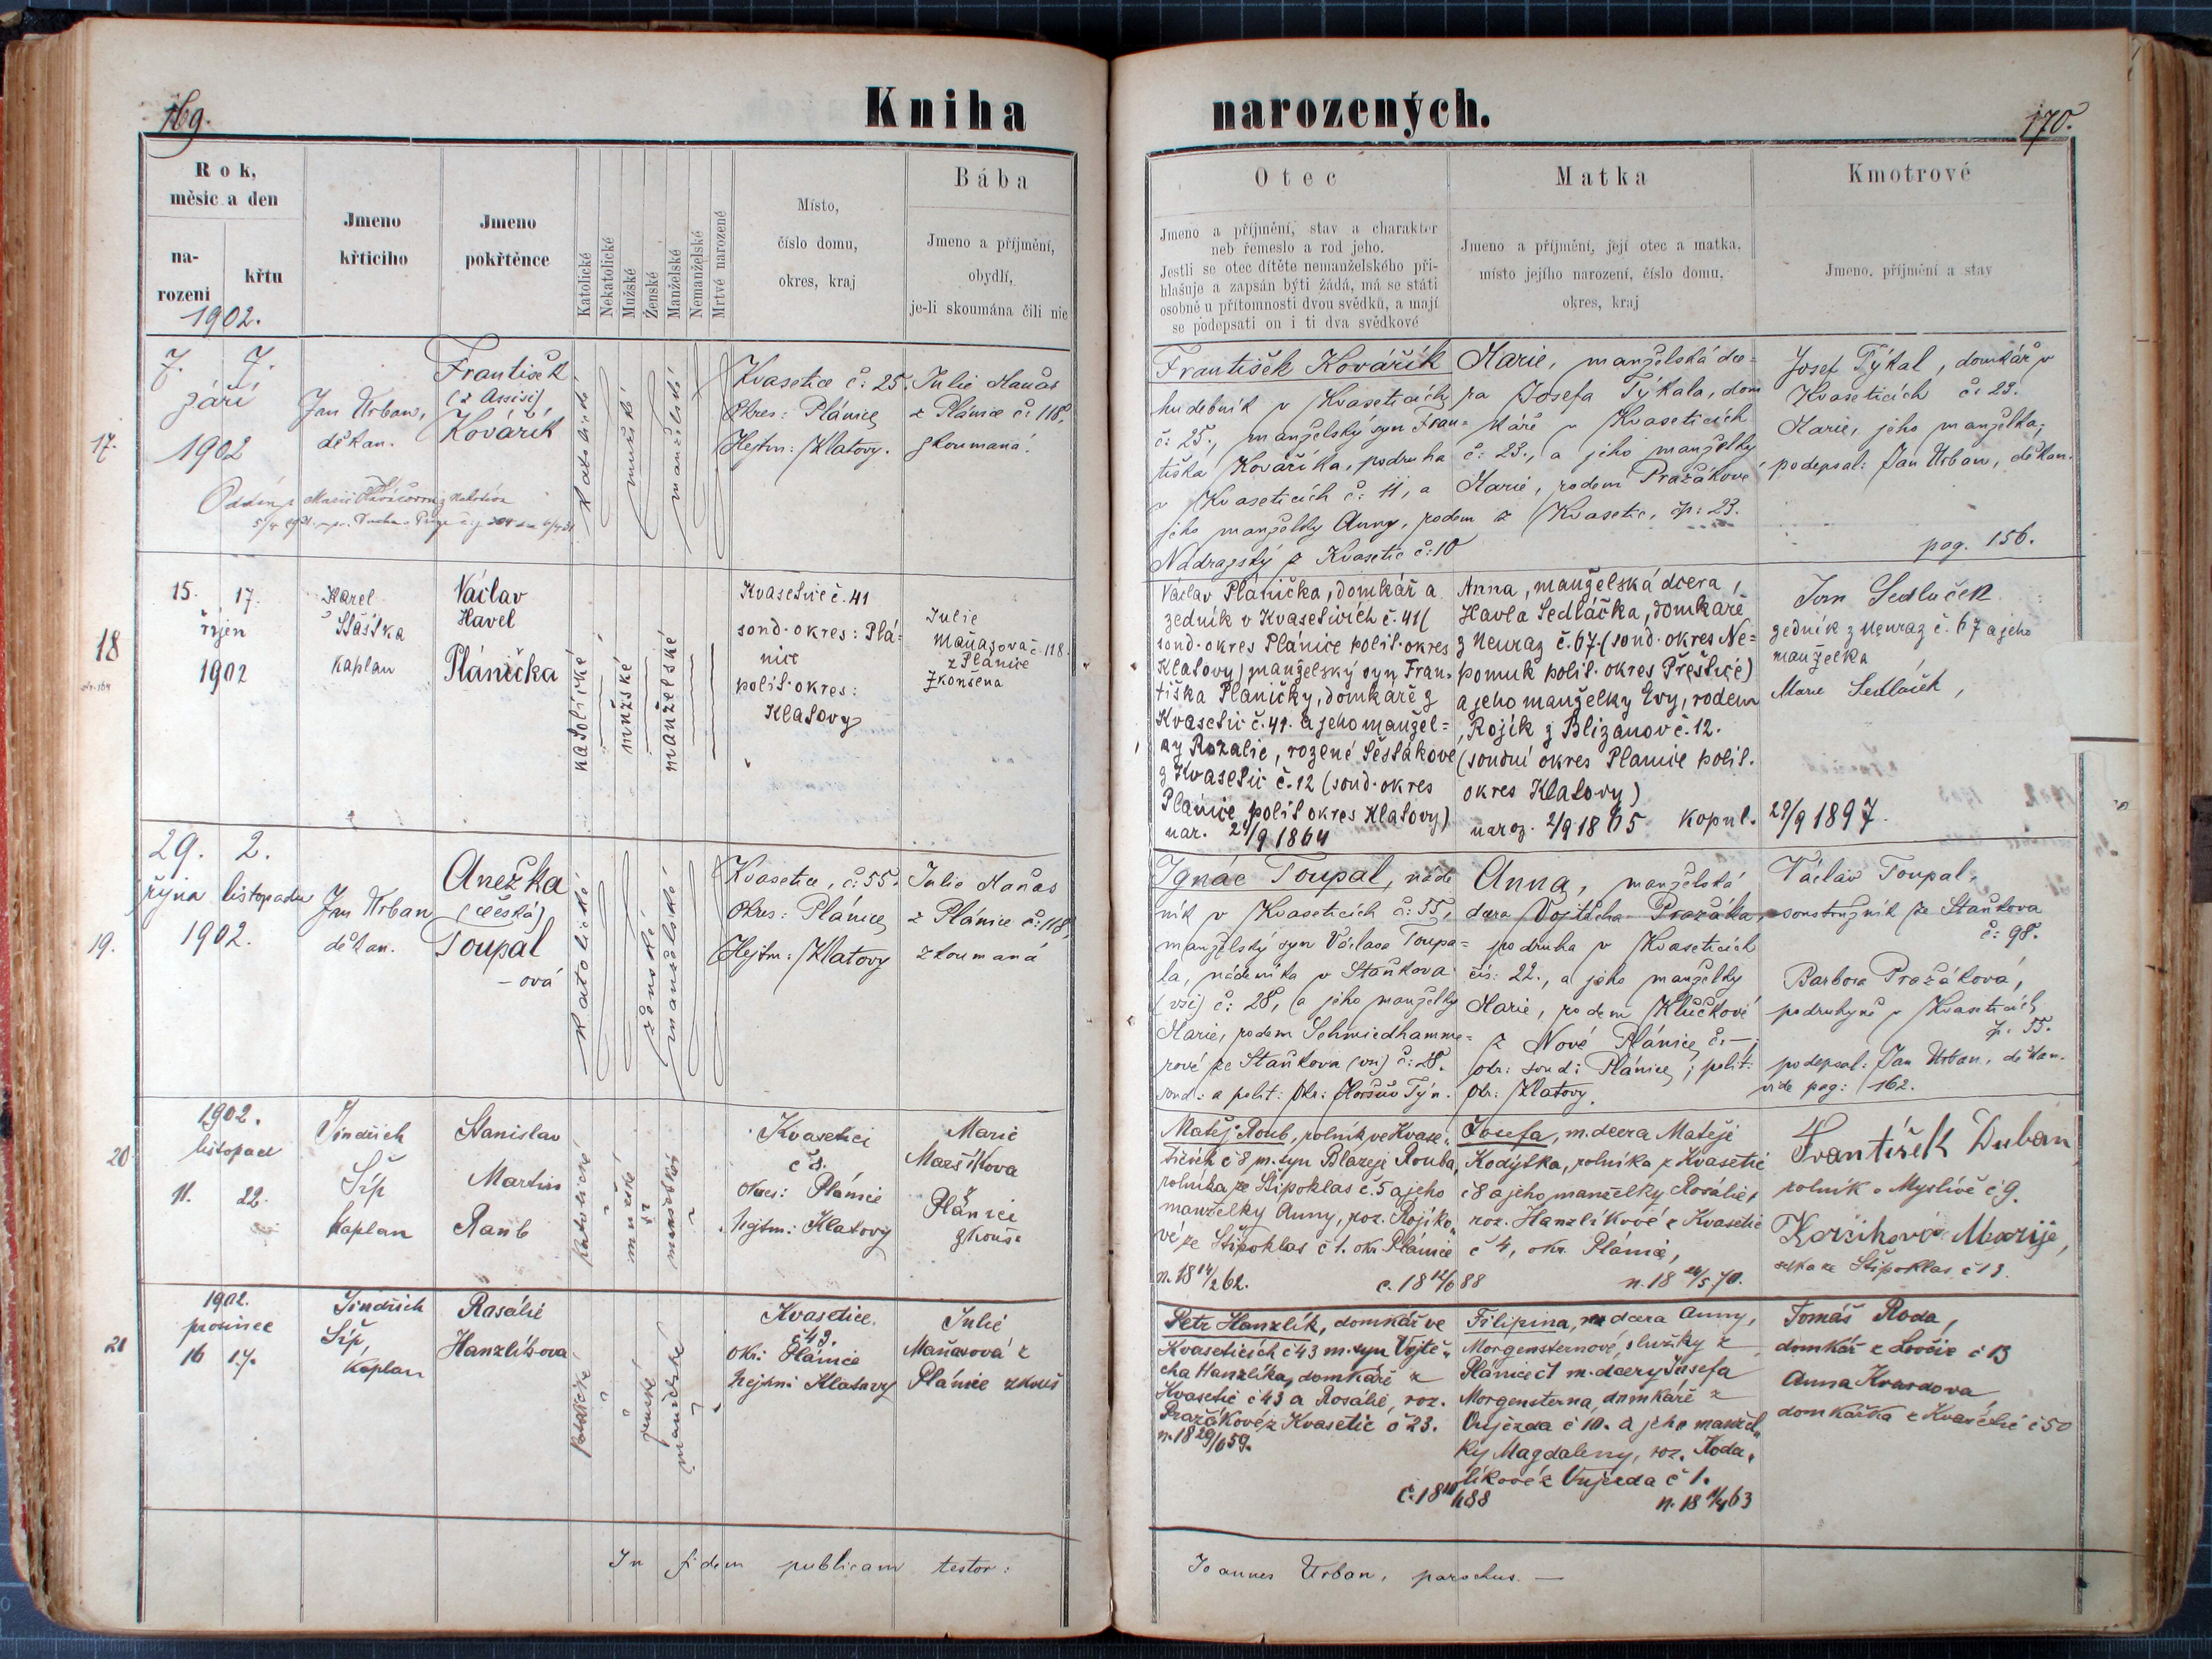 169.
Kniha
narozených.
170.
Rok,
měsíc a den
na-
rozeni
křtu
1902.
Jmeno
křticiho
Jmeno
pokřtěnce
Katolické
Nekatolické
Mužské
Ženské
Manželské
Nemanželské
Mrtvé narozené
Místo,
číslo domu,
okres, kraj
Bába
Jmeno a příjmění,
obydlí,
je-li skoumána čili nic
Otec
Jmeno a příjmění, stav a charakter
neb řemeslo a rod jeho.
Jestli se otec dítěte nemanželského při-
hlašuje a zapsán býti žádá, má se státi
osobně u přítomnosti dvou svědků, a mají
se podepsati on i ti dva svědkové
Matka
Jmeno a příjmění, její otec a matka,
místo jejího narození, číslo domu,
okres, kraj
Kmotrové
Jmeno, příjmění a stav
17.
7. 7.
září
1902
Jan Urban,
děkan.
František
(z Assisi)
Kovářík
katolické
mužské
manželské
Kvasetice č: 25.
Okres: Plánice
Hejtm: Klatovy.
Julie Maňas
z Plánice č: 118,
zkoumaná.
František Kovářík
hudebník v Kvaseticích
č: 25., manželský syn Fran=
tiška Kovaříka, podruha
v Kvaseticích č: 11, a
jeho manželky Anny, rodem
Nádražský z Kvasetic č: 10
Marie, manželská dce=
ra Josefa Týkala, dom
káře v Kvaseticích
č: 23., a jeho manželky
Marie, rodem Pražákové
z Kvasetic, čp: 23.
Josef Týkal, domkář v
Kvaseticích č: 23.
Marie, jeho manželka;
podepsal: Jan Urban, děkan.
pag. 156.
18
15. 17.
říjen
1902
Karel
Šťastka
kaplan
Václav
Havel
Plánička
katolické
mužské
manželské
Kvasetice č. 41
soud. okres: Plá=
nice
polit. okres:
Klatovy
Julie
Maňasova č. 118.
z Plánice
Zkoušena
Václav Plánička, domkář a
zedník v Kvaseticích č. 41 (
soud. okres Plánice polit. okres
Klatovy) manželský syn Fran=
tiška Pláničky, domkáře z
Kvasetic č. 41. a jeho manžel=
ky Rozalie, rozené Šestákove
z Kvasetic č. 12 (soud. okres
Plánice polit okres Klatovy)
nar. 29/9 1864
Anna, manželská dcera,
Havla Sedláčka, domkáře
z Neuraz č. 67. (soud. okres Ne=
pomuk polit. okres Přeštice)
a jeho manželky Evy, rodem
Rojík z Blizanov č. 12.
(soudní okres Planice polit.
okres Klatovy)
naroz. 2/9 1865 kopul. 29/9 1897.
Jan Sedláček
zedník z Neuraz č. 67 a jeho
manželka
Marie Sedláček,
19.
29. 2.
října listopadu
1902.
Jan Urban
děkan.
Anežka
(česká)
Toupal
- ová
katolické
ženské
manželské
Kvasetice, č: 55.
Okres: Plánice
Hejtm: Klatovy
Julie Maňas
z Plánice č: 118,
zkoumaná
Ignác Toupal, náde
ník v Kvaseticích č: 55,
manželský syn Václava Toupa=
la, nádeníka v Staňkova
(vsi) č: 28, a jeho manželky
Marie, rodem Schmiedhamme=
rové ze Staňkova (vsi) č: 28.
soud: a polit: Okr: Horšův Týn.
Anna, manželská
dcera Vojtěcha Pražáka,
podruha v Kvaseticích
čís: 22., a jeho manželky
Marie, rodem Klučkové
z Nové Plánice č: —;
okr: soud: Plánice; polit:
Okr: Klatovy.
Václav Toupal,
soustružník ze Staňkova
č: 98.
Barbora Pražáková,
podruhyně v Kvaseticích
čp. 55.
podepsal: Jan Urban, děkan.
vide pag: 162.
20
1902.
listopad
11. 22.
Jindřich
Šíp
kaplan
Stanislav
Martin
Raub
katolické
mužské
manželské
Kvasetici
č 8.
okres: Plánice
hejtm: Klatovy
Marie
Plánici
zkouš.
Matěj Roub, rolník ve Kvase„
ticích č 8 m. syn Blazeje Rouba,
rolníka ze Štipoklas č. 5 a jeho
manželky Anny, roz. Rojíko„
vé ze Štipoklas č 1. okr. Plánice
n. 18 14/2 62.
c. 18 12/6 88
Josefa, m. dcera Matěje
Kodýtka, rolníka z Kvasetic
č 8 a jeho manželky Rosálie,
roz. Hanzlíkové z Kvasetic
č 4, okr. Plánice,
n. 18 24/5 70.
František Duban,
rolník v Myslívě č 9.
Marije,
ze Štipoklas č 13.
21
1902.
prosinec
16 17.
Jindřich
Šíp,
kaplan
Rasálie
Hanzlíkova
katolické
ženské
manželské
Kvasetice.
č 43.
okr: Plánice
hejtm: Klatovy
Julie
Maňasová z
Plánice zkouš
Petr Hanzlík, domkář ve
Kvaseticích č 43 m. syn Vojtě„
cha Hanzlíka, domkáře z
Kvasetic č 43 a Rosálie, roz.
Pražákové z Kvasetic č 23.
n. 18 29/6 59.
Filipina, m dcera Anny,
Morgensternové, služky z
Plánice č 1 m. dcery Josefa
Morgensterna, domkáře z
Oujezda č 10. a jeho manžel„
ky Magdaleny, roz. Koda„
líkové z Oujezda č 1.
Tomáš Roda,
domkář z Lovčic č 13
Anna Kvardova,
domkařka z Kvasetic č 50
In fidem publicam testor:
Joannes Urban, parochus. —